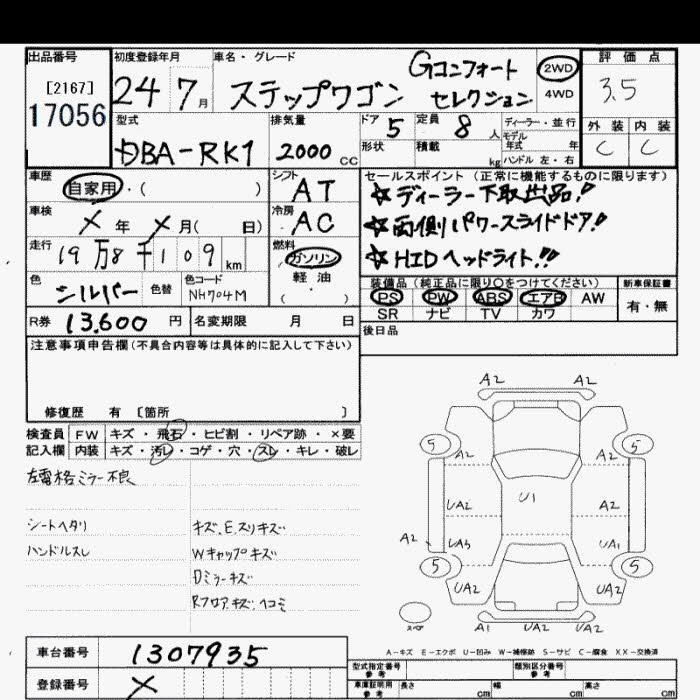 出品番号
[2167]
17056
初度登録年月
24 7月
車名・グレード
Gコンフォート
ステップワゴン セレクション
2WD
4WD
評価点
3.5
外装 内装
C C
型式
DBA-RK1
排気量
2000 CC
ドア 5
形状
定員 8 人
積載 kg
ディーラー・並行
モデル
年式 年
ハンドル 左・右
車歴
自家用・( )
シフト
AT
セールスポイント (正常に機能するものに限ります)
☆ディーラー下取出品!!
☆両側パワースライドドア!!
☆HIDヘッドライト!!!
車検
X 年 X 月( 日)
冷房
AC
走行
19万8千109 km
燃料
ガソリン
軽・油
( )
色
シルバー
色替
色コード
NH704M
装備品 (純正品に限り○をつけてください)
PS PW ABS エアB AW
SR ナビ TV カワ
新車保証書
有・無
R券 13,600 円
名変期限 月 日
後日品
注意事項申告欄(不具合内容等は具体的に記入して下さい)
修復歴 有 〔箇所 〕
検査員 FW キズ・飛石・ヒビ割・リペア跡・×要
記入欄 内装 キズ・汚レ・コゲ・穴・スレ・キレ・破レ
左電格ミラー不良
シートヘタリ
ハンドルスレ
キズ.E.スリキズ
Wキャップキズ
Dミラーキズ
Rフロアキズ.ヘコミ
A2 A2
5 5
A2 A2
U1
UA2 A2
A2 UA3 UA1
5 5
UA2 UA2
スペア
A1 UA2 UA2
A-キズ E-エクボ U-凹み W-補修跡 S-サビ C-腐食 XX-交換済
車台番号 1307935
登録番号 X
型式指定番号
参考
類別区分番号
参考
車庫証明用
参考
長さ cm 幅 cm 高さ cm